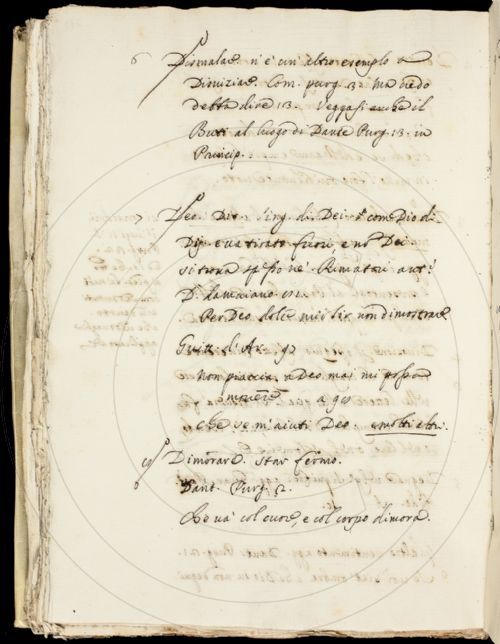 6 Dismalare. n'è un' altro esemplo a
Diviziare. Com. purg. 3. ma credo
debba dire 13. Veggasi anche il
Buti al luogo di Dante Purg. 13. in
Princip.
7 Deo. Dio. sing. di Dei. è come Dio di
Dij. e va tirato fuori, e no' Dei
si trova spesso ne' Rimatori ant:
D. Da maiano
Per Deo dolce mio sir non dimostrare
Guitt. d. Ar. 92
Non piaccia a Deo mai mi possa
movere a go
che se m'aiuti Deo. e molti altri.
9 Dimorare. star fermo.
Dant. Purg. 2.
Che va' col cuore, e col corpo dimora.